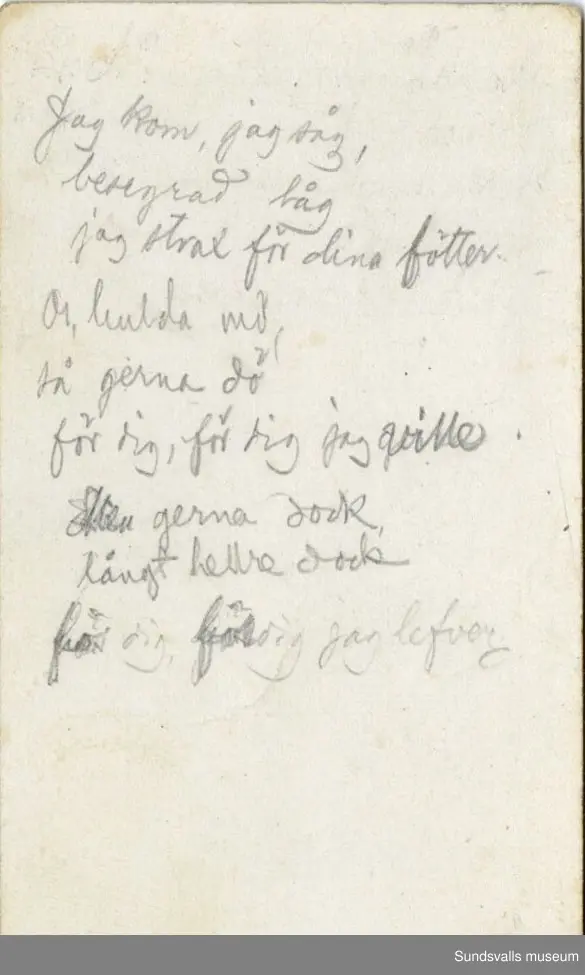 Jag kom, jag såg,
besegrad låg
jag strax för dina fötter.
O, hulda mö,
så gerna dö
för dig, för dig jag ville.
Men gerna dock,
långt hellre dock
för dig, för dig jag lefver
Sundsvalls museum